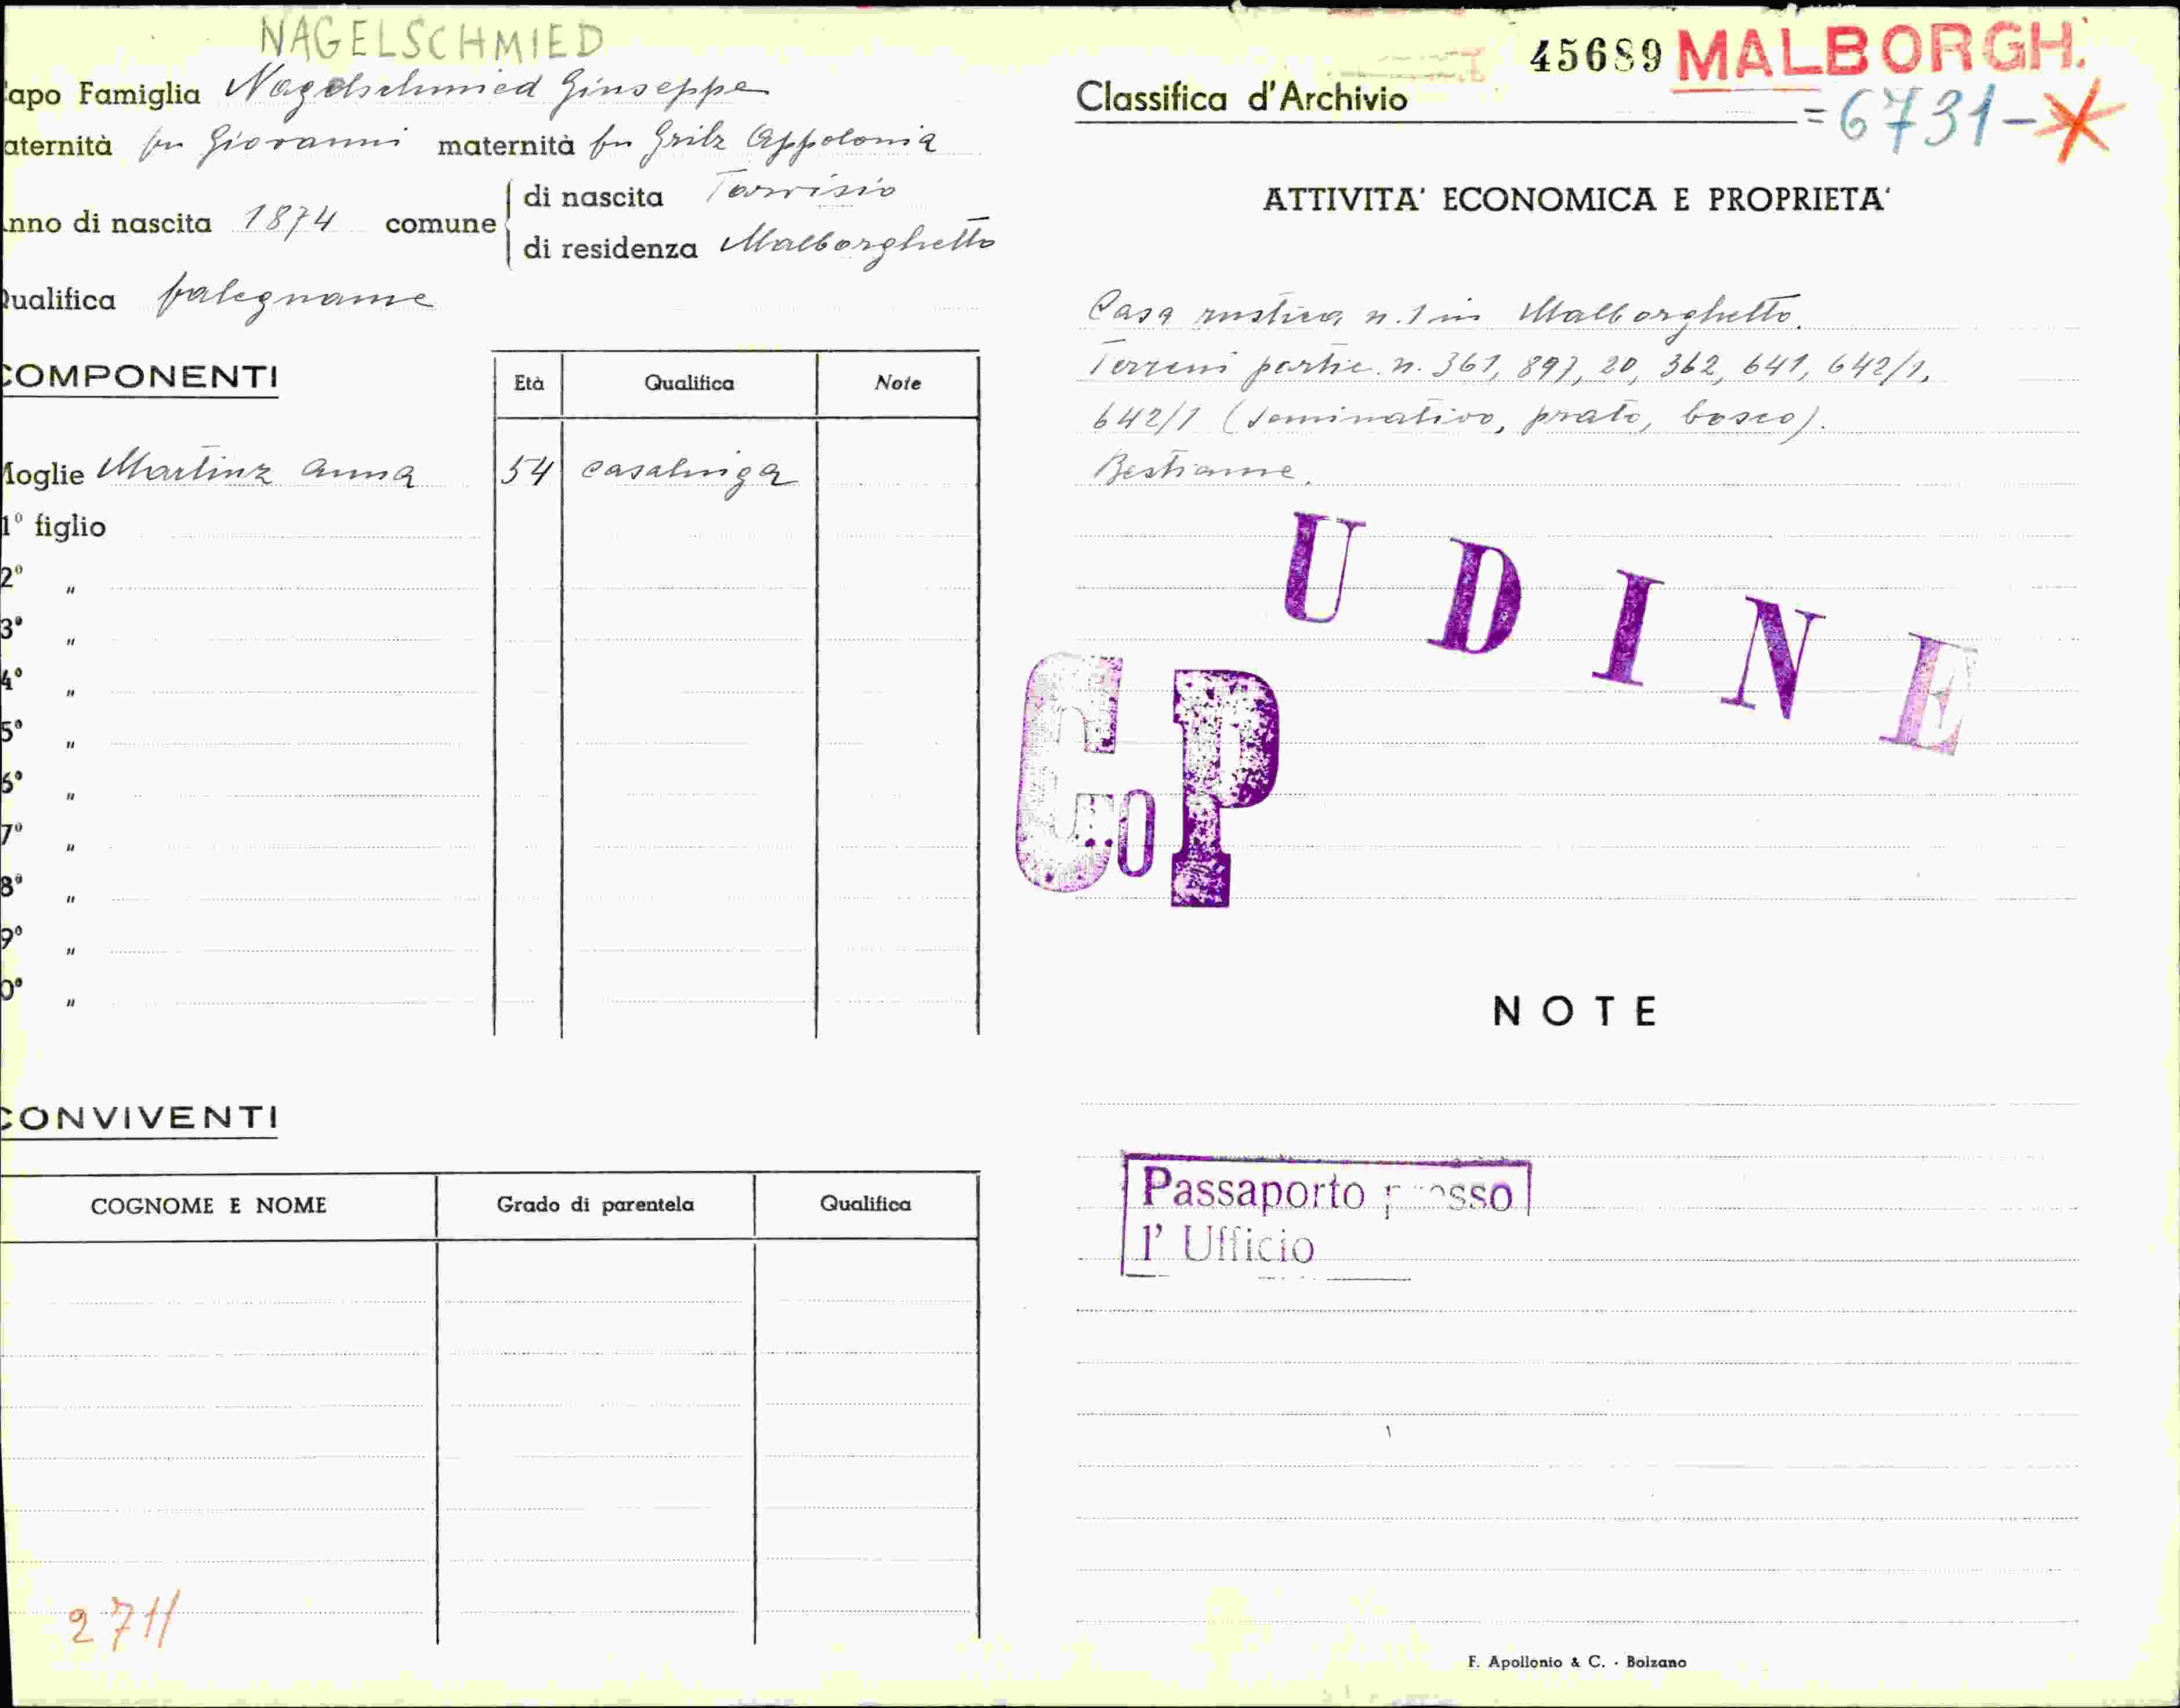 NAGELSCHMIED
apo Famiglia Nagelschmied Giuseppe
aternità fu Giovanni maternità fu Grilz Appolonia
nno di nascita 1874 comune
di nascita Tarvisio
di residenza Malborghetto
ualifica falegname
COMPONENTI
Età Qualifica Note
Moglie Martinz Anna 54 casalinga
1º figlio
2º "
3º "
4º "
5º "
6º "
7º "
8º "
9º "
0º "
CONVIVENTI
COGNOME E NOME Grado di parentela Qualifica
2711
45689 MALBORGH.
Classifica d'Archivio =6731-
ATTIVITA' ECONOMICA E PROPRIETA'
Casa rustica n. 1 in Malborghetto.
Terreni partic. n. 361, 897, 20, 362, 641, 642/1,
642/1 (seminativo, prato, bosco).
Bestiame.
UDINE
CoP
NOTE
Passaporto presso
l' Ufficio
F. Apollonio & C. - Bolzano